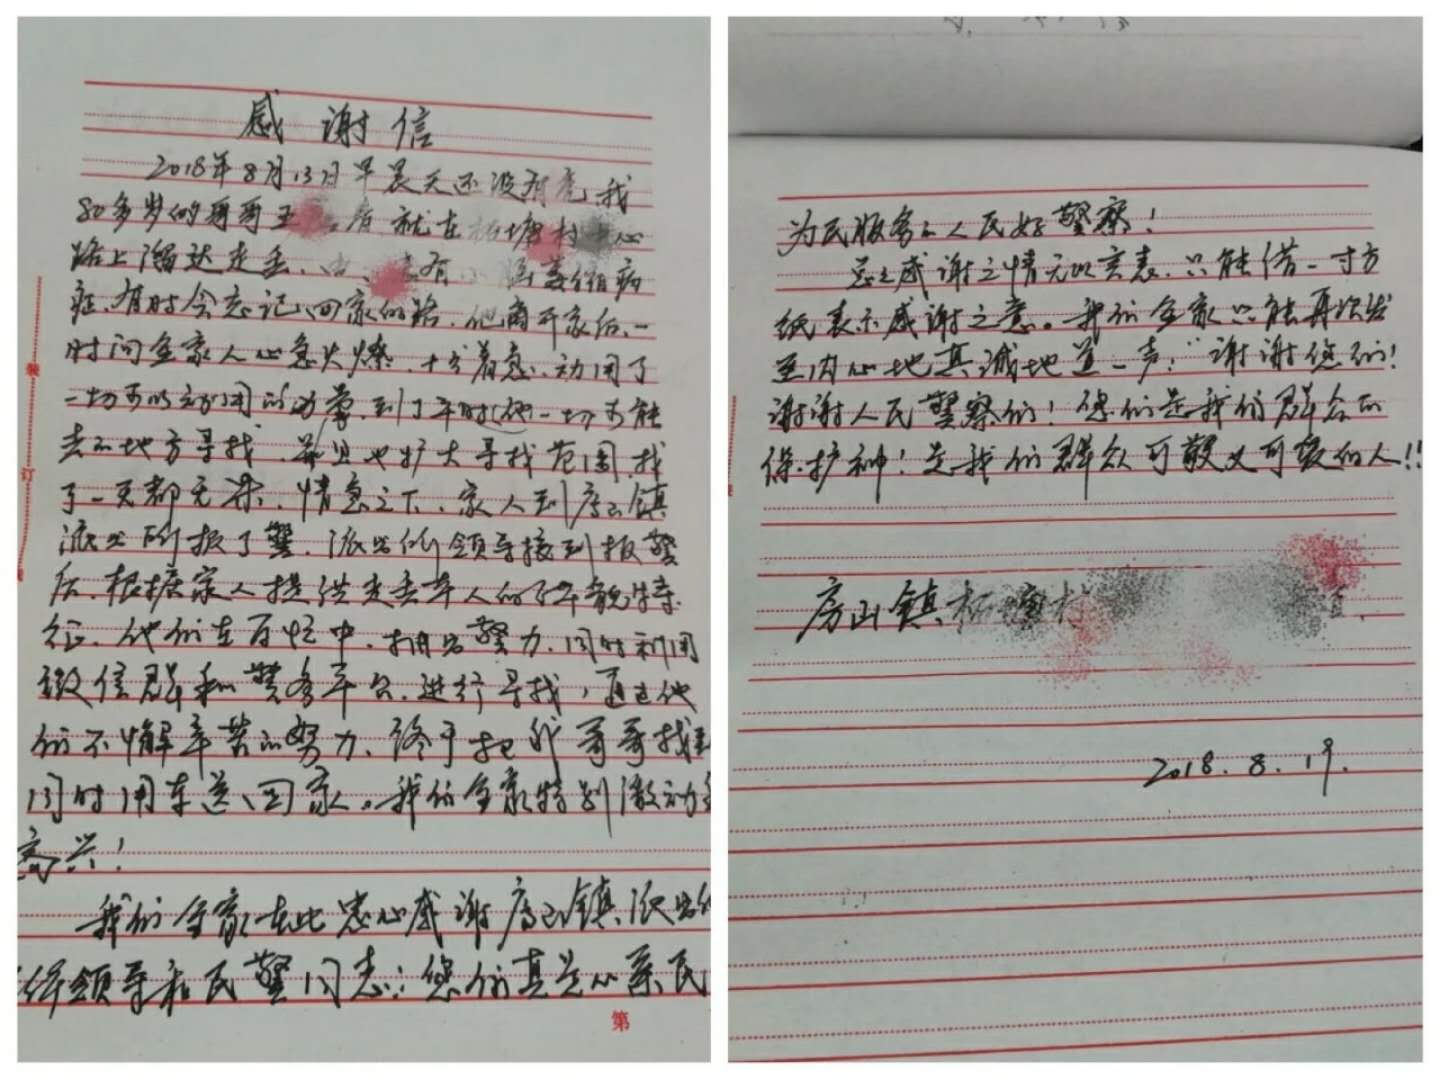 感谢信
2018年8月13日早晨天还没有亮,我
80多岁的哥哥王 就在柘塘村中心
路上溜达走丢, 有小脑萎缩病
症,有时会忘记回家的路,他离开家后,一
时间全家人心急火燎,十分着急,动用了
一切可以动用的力量,到了平时他一切可能
去的地方寻找,并且也扩大寻找范围,找
了一天都无果,情急之下,家人到房山镇
派出所报了警,派出所领导接到报警
后,根据家人提供走丢老人的体貌特
征,他们在百忙中,抽出警力,同时利用
微信群和警务平台,进行寻找,通过他
们不懈辛苦的努力,终于把我哥哥找到
同时用车送回家。我们全家特别激动
高兴!
我们全家在此衷心感谢房山镇派出所
全体领导和民警同志:您们真是心系民
第
装
订
为民服务的人民好警察!
总之感谢之情无以言表,只能借一寸方
纸表示感谢之意。我们全家只能再次发
至内心地真诚地道一声:“谢谢您们!
谢谢人民警察们!您们是我们群众的
保护神!是我们群众可敬又可爱的人!!
房山镇柘塘村
2018.8.19.